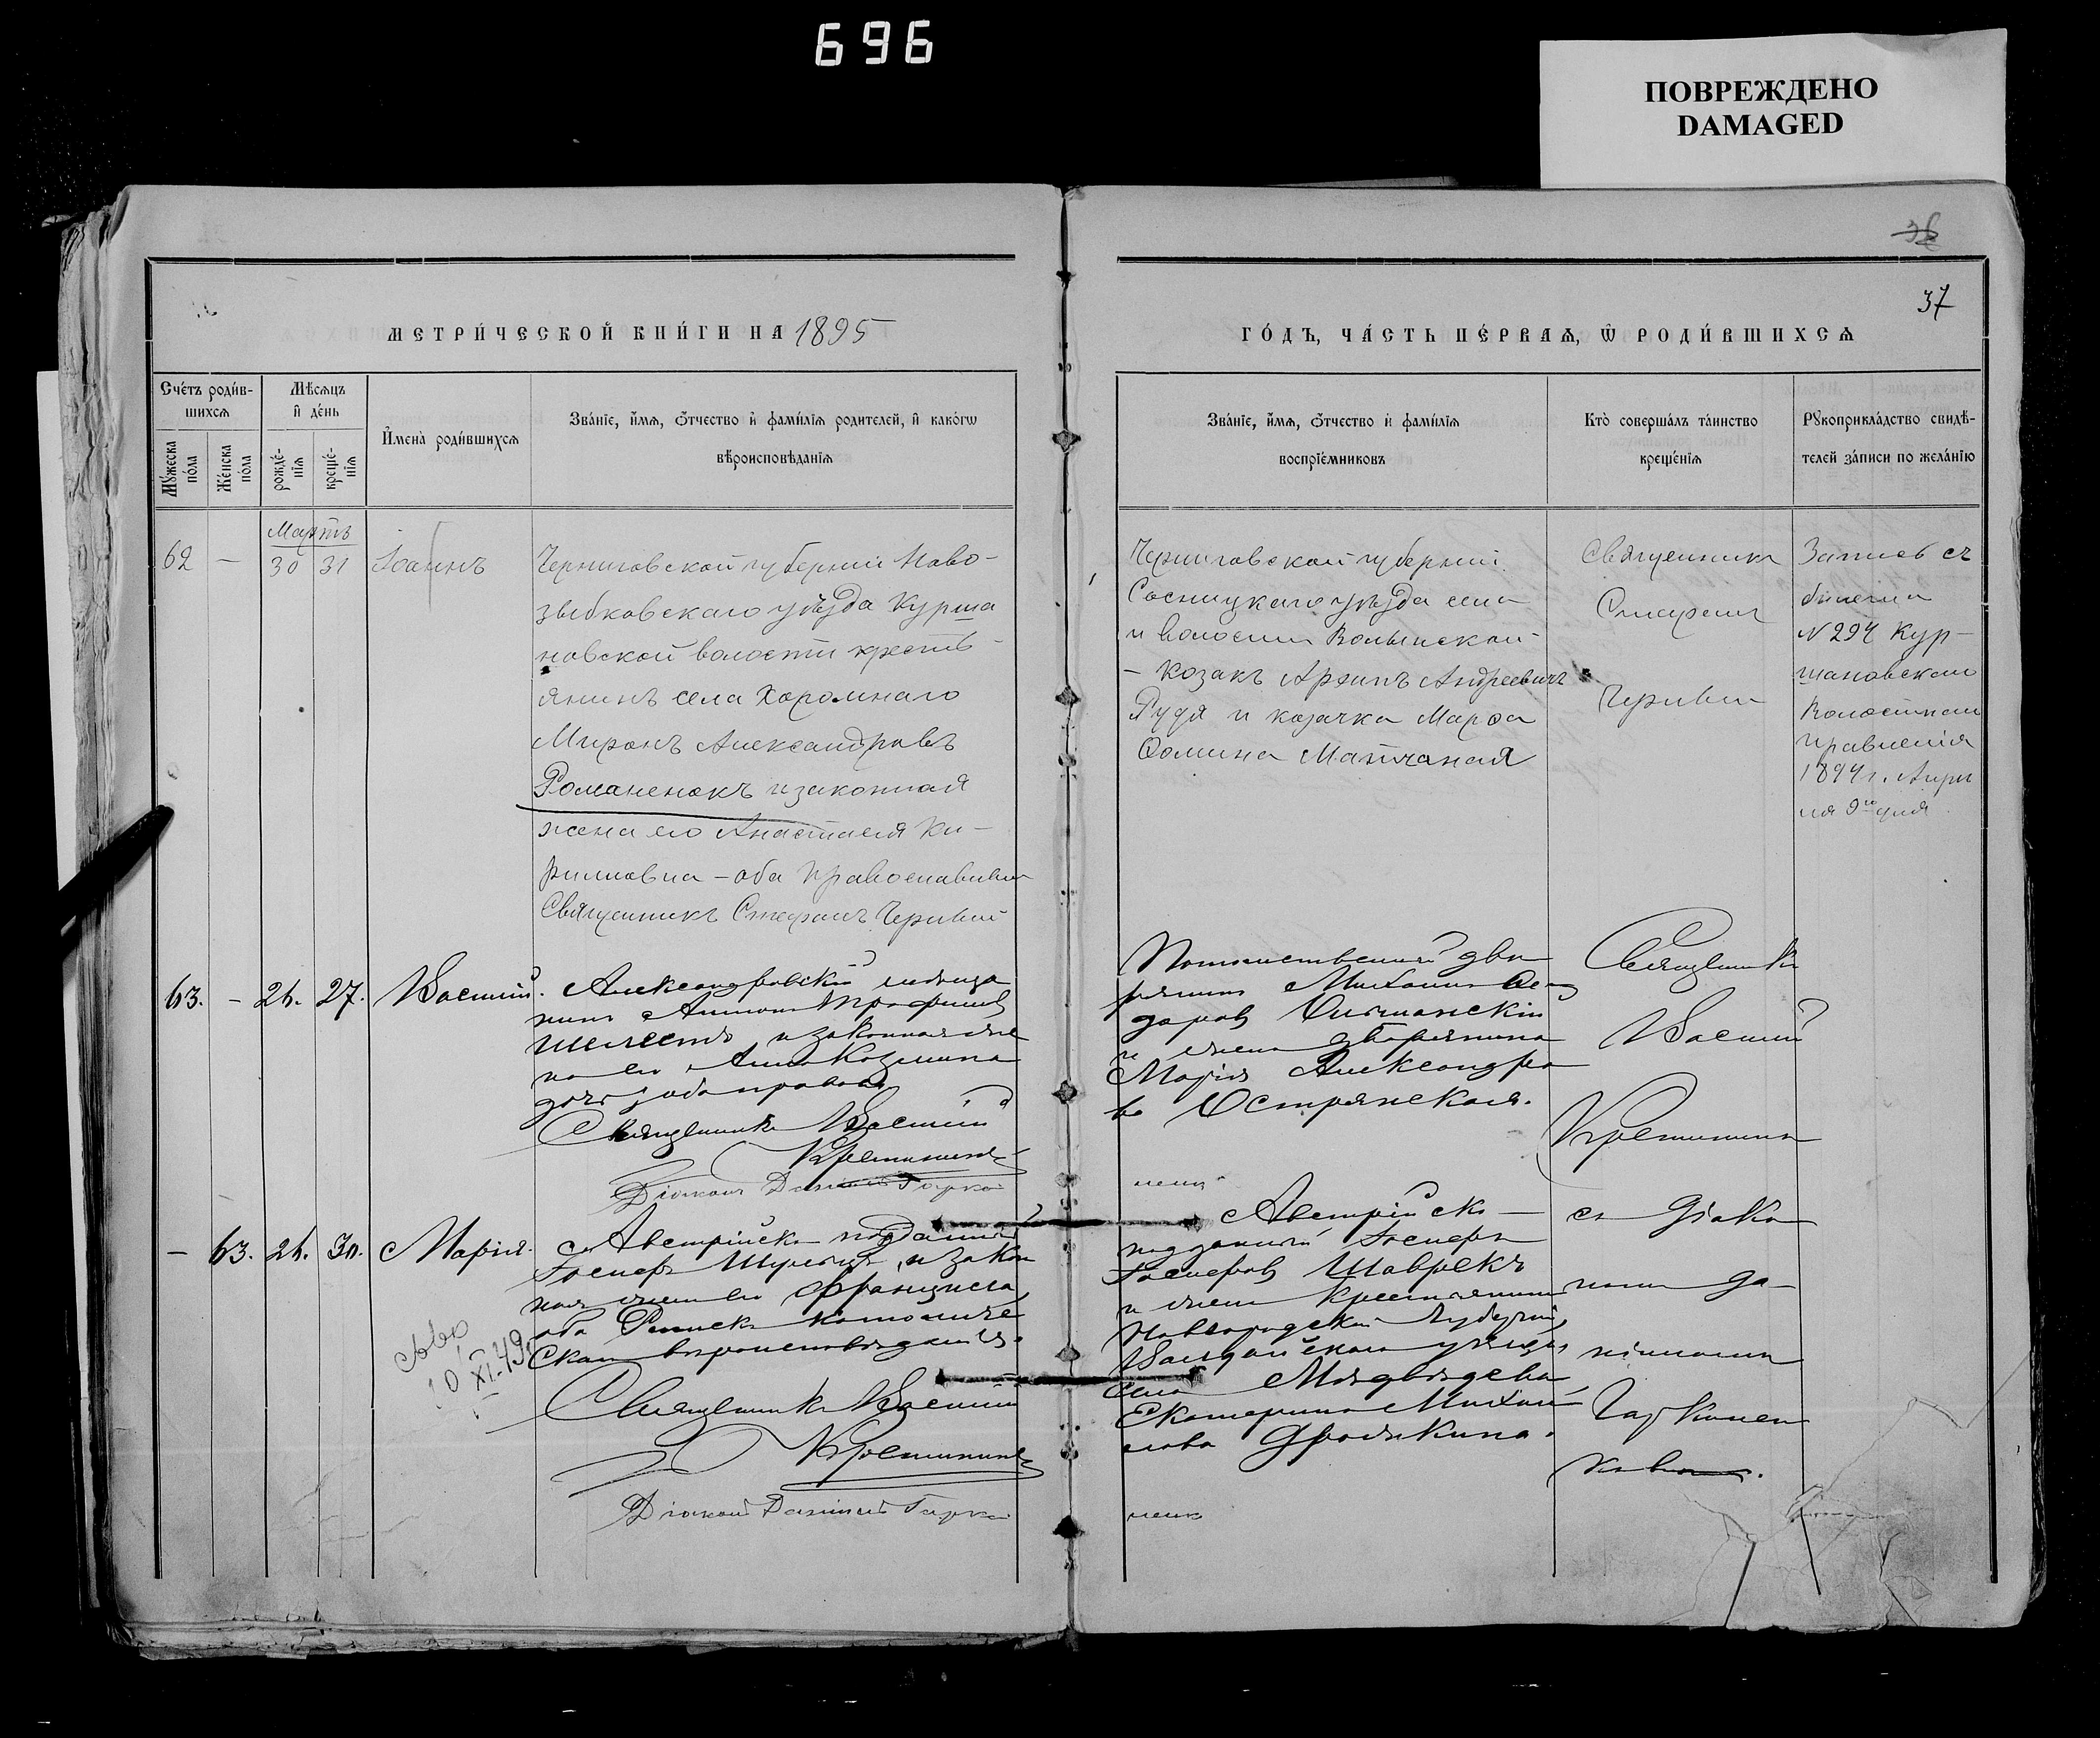 696
ПОВРЕЖДЕНО
DAMAGED
37
МЕТРИ́ЧЕСКОЙ КНИ́ГИ НА 1895
ГО́ДЪ, ЧА́СТЬ ПЕ́РВАѦ, Ѽ РОДИ́ВШИХСѦ
Сче́тъ роди́в-
шихсѧ
Мꙋ́жеска
по́ла
Же́нска
по́ла
Мѣ́сѧцъ
и҆ де́нь
рожде́-
нїѧ
креще́-
нїѧ
И҆мена̀ роди́вшихсѧ
Зва́нїе, и҆́мѧ, ѻ҆́тчество и҆ фами́лїѧ родителей, и҆ како́гѡ
вѣроисповѣданїѧ
Зва́нїе, и҆́мѧ, ѻ҆́тчество и҆ фами́лїѧ
воспрїе́мниковъ
Кто̀ соверша́лъ та́инство
креще́нїѧ
Рꙋкоприкла́дство свидѣ́-
телей за́писи по жела́нїю
Мартъ
62 — 30 31 Іоаннъ
Черниговской губерніи Ново-
зыбковскаго уѣзда Курша
новской волости кресть-
янинъ села Хоромнаго
Миронъ Александровъ
Романенокъ и законная
жена его Анастасія Ки-
рилловна – оба православные
Священникъ Стефанъ
Черниговской губерніи
Сосницкаго уѣзда села
и волости Волынской
– козакъ Архипъ Андреевичъ
Рудя и козачка Марѳа
Ѳомина
Священникъ
Стефанъ
Запись съ
билета
N 294 Кур-
шановскаго
Волостнаго
правленія
1894 г. Апрѣ
ля 9го дня
63. – 26. 27. Василій.
Александровскій мѣща
нинъ Антонъ Трофимовъ
Шелестъ и законная же
на его Анна Козмина
оба правосл.
Священникъ Василій
Діаконъ Даніилъ Гарка
менко
Потомственный дво
рянинъ Михаилъ Ѳео
доровъ
и жена дворянина
Марія Александро
ва Острянская.
Священникъ
Василій
— 63. 26. 30. Марія.
Австрійско подданный
Іосифъ и закон
ная жена его Франциска,
оба Римско католиче
скаго вѣроисповѣданія.
Священникъ Василій
Діаконъ Даніилъ Гарка
менко
10 XI.49
Австрійско –
подданный Іосифъ
Іосифовъ Шаврекъ
и жена крестьянина
Новгородской Губерніи,
Валдайскаго уѣзда,
села
Екатерина Михай
лова
съ діако
номъ Да–
ніиломъ
Гаркамен
ковымъ.